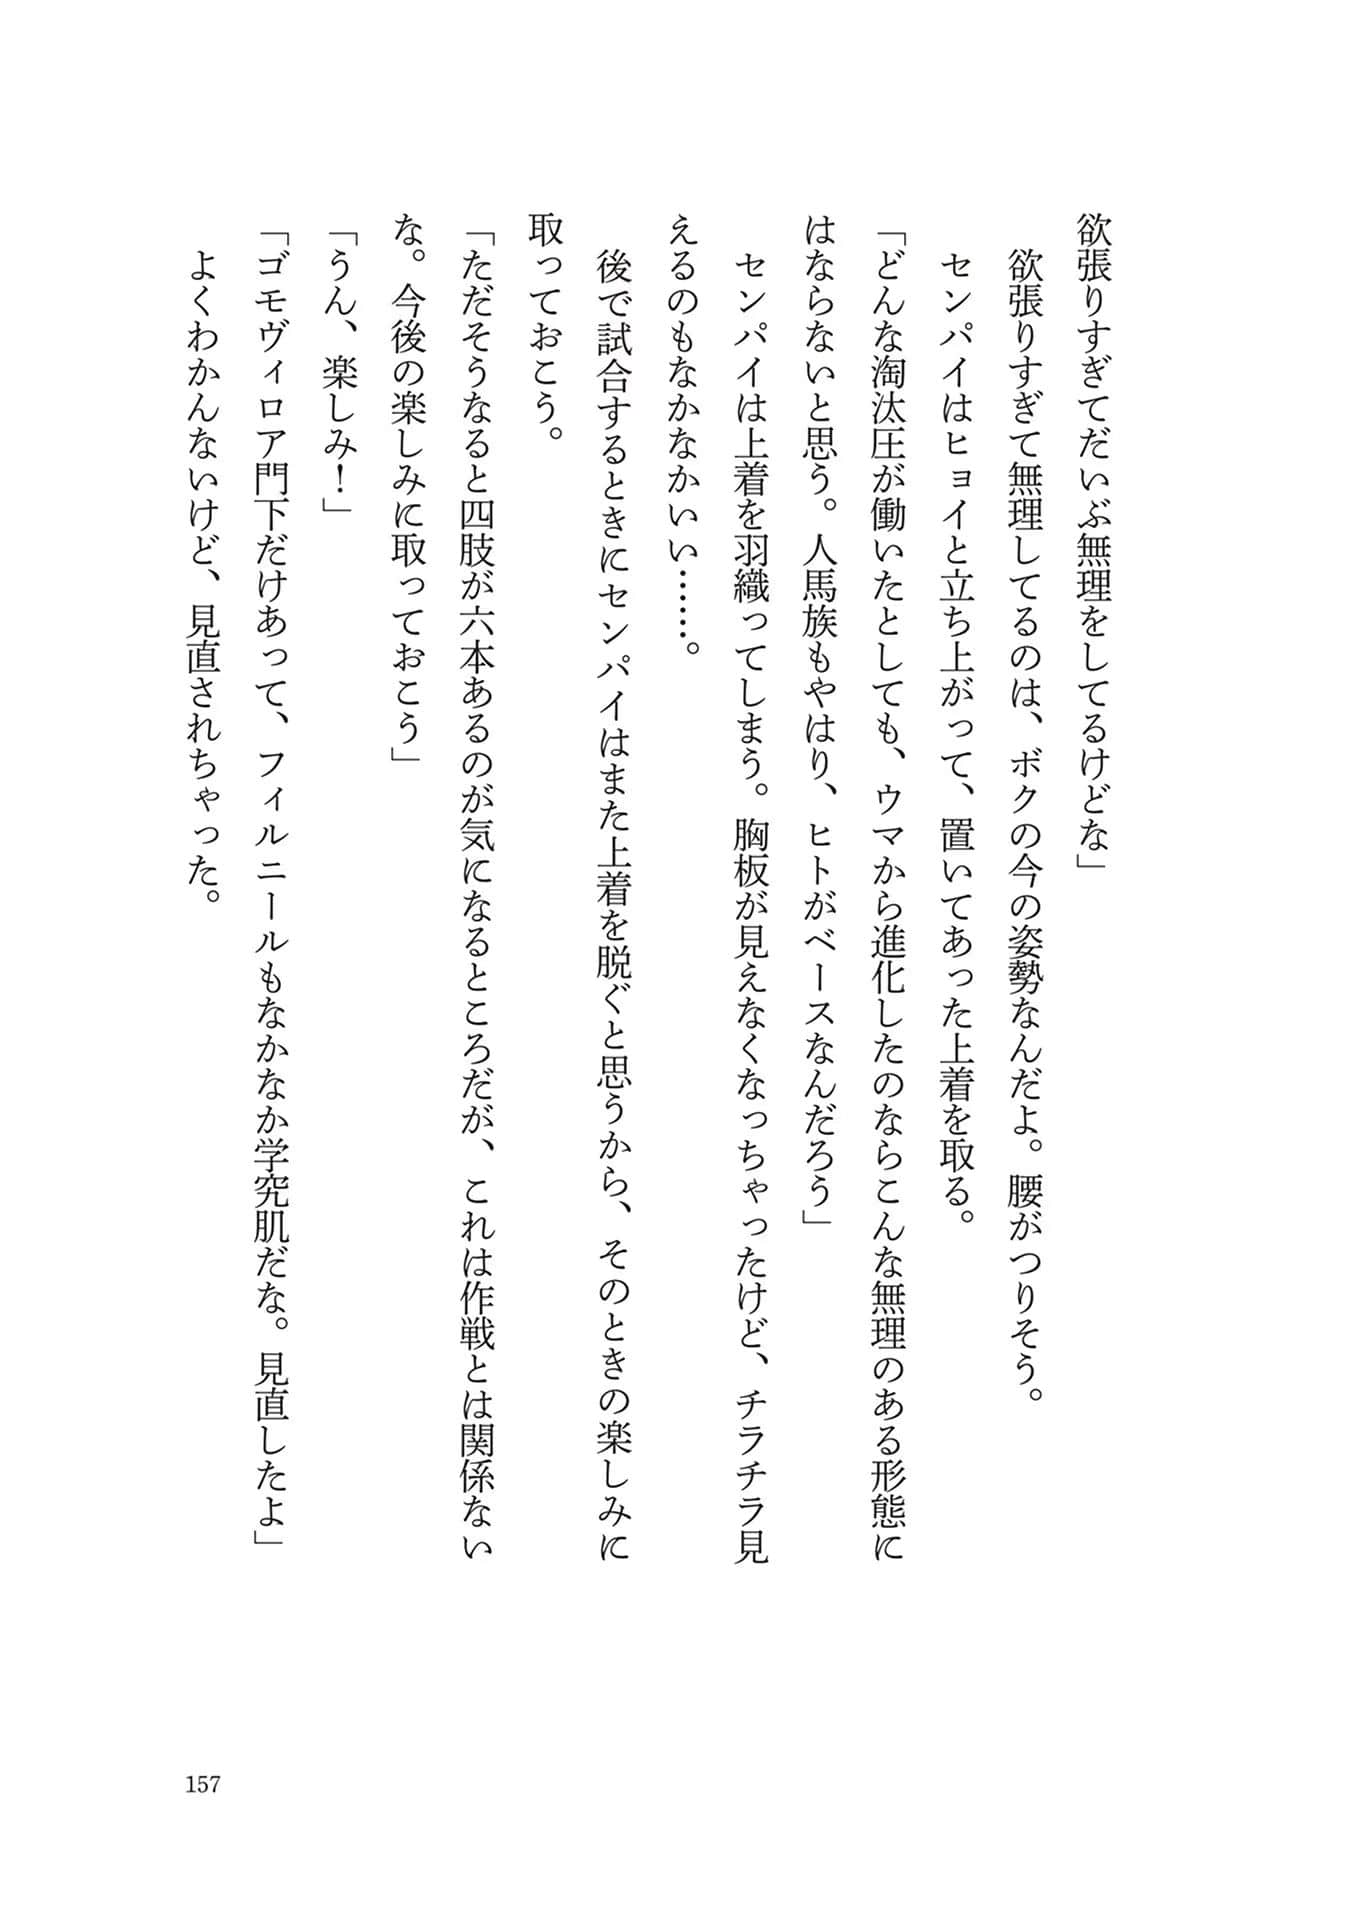 欲張りすぎてだいぶ無理をしてるけどな」
欲張りすぎて無理してるのは、ボクの今の姿勢なんだよ。腰がつりそう。
センパイはヒョイと立ち上がって、置いてあった上着を取る。
「どんな淘汰圧が働いたとしても、ウマから進化したのならこんな無理のある形態に
はならないと思う。人馬族もやはり、ヒトがベースなんだろう」
センパイは上着を羽織ってしまう。胸板が見えなくなっちゃったけど、チラチラ見
えるのもなかなかいい……。
後で試合するときにセンパイはまた上着を脱ぐと思うから、そのときの楽しみに
取っておこう。
「ただそうなると四肢が六本あるのが気になるところだが、これは作戦とは関係ない
な。今後の楽しみに取っておこう」
「うん、楽しみ！」
「ゴモヴィロア門下だけあって、フィルニールもなかなか学究肌だな。見直したよ」
よくわかんないけど、見直されちゃった。
157